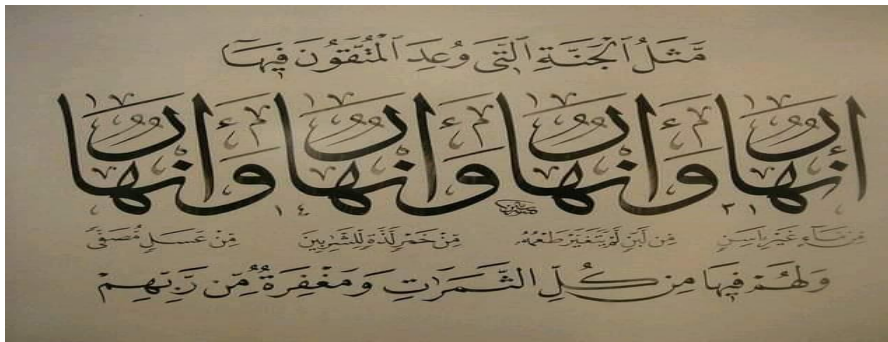 مَّثَلُ ٱلْجَنَّةِ ٱلَّتِى وُعِدَ ٱلْمُتَّقُونَ فِيهَآ
أَنْهَارٌ وَأَنْهَارٌ وَأَنْهَارٌ وَأَنْهَارٌ
مِّن مَّآءٍ غَيْرِ ءَاسِنٍ مِّن لَّبَنٍ لَّمْ يَتَغَيَّرْ طَعْمُهُۥ مِّنْ خَمْرٍ لَّذَّةٍ لِّلشَّٰرِبِينَ مِّنْ عَسَلٍ مُّصَفًّى
وَلَهُمْ فِيهَا مِن كُلِّ ٱلثَّمَرَٰتِ وَمَغْفِرَةٌ مِّن رَّبِّهِمْ